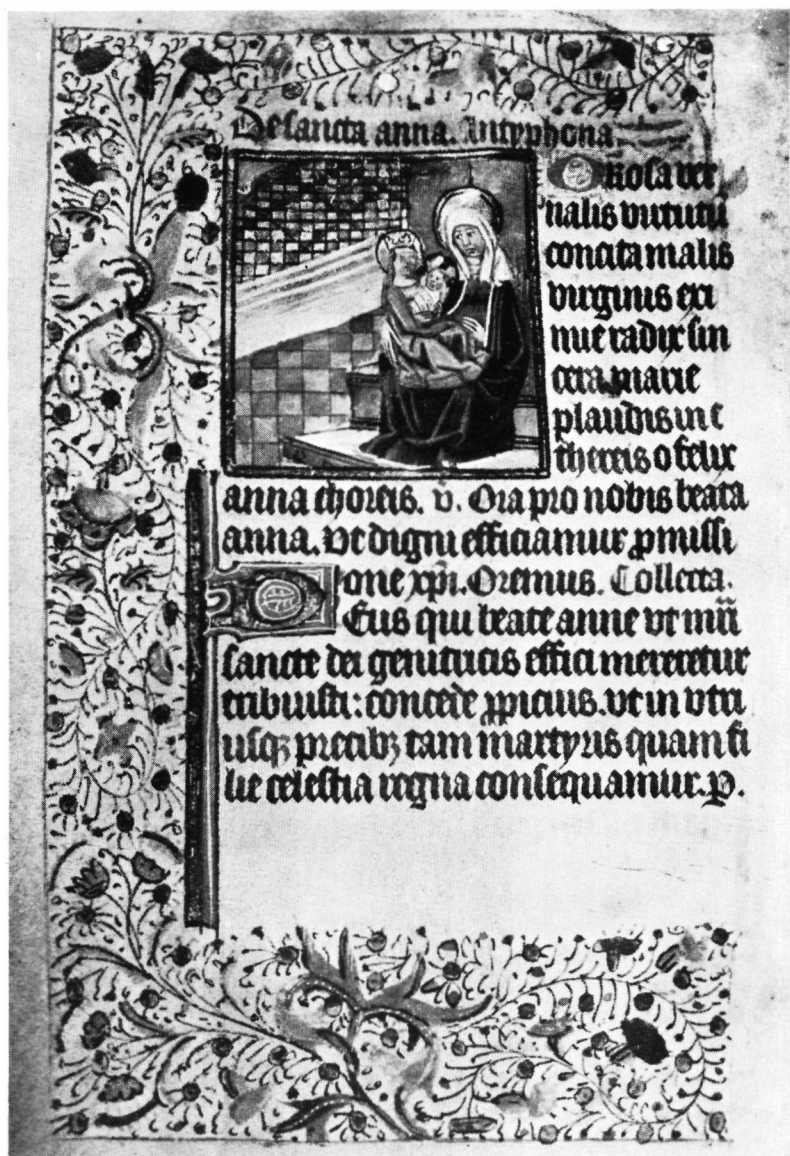 De sancta anna. Antyphona
O Rosa ver
nalis virtutū
concita malis
virginis exi
mie radix sin
cera marie
plaudis in e
thereis o felix
anna choreis. v. Ora pro nobis beata
anna. Vt digni efficiamur ꝓmissi
one xp̄i. Oremus. Collecta.
Deus qui beate anne vt mr̄
sancte dei genitricis effici meretetur
tribuisti: concede ꝓpicius. vt in vtri
usqꝫ precibꝫ tam martyris quam fi
lie celestia regna consequamur. p.